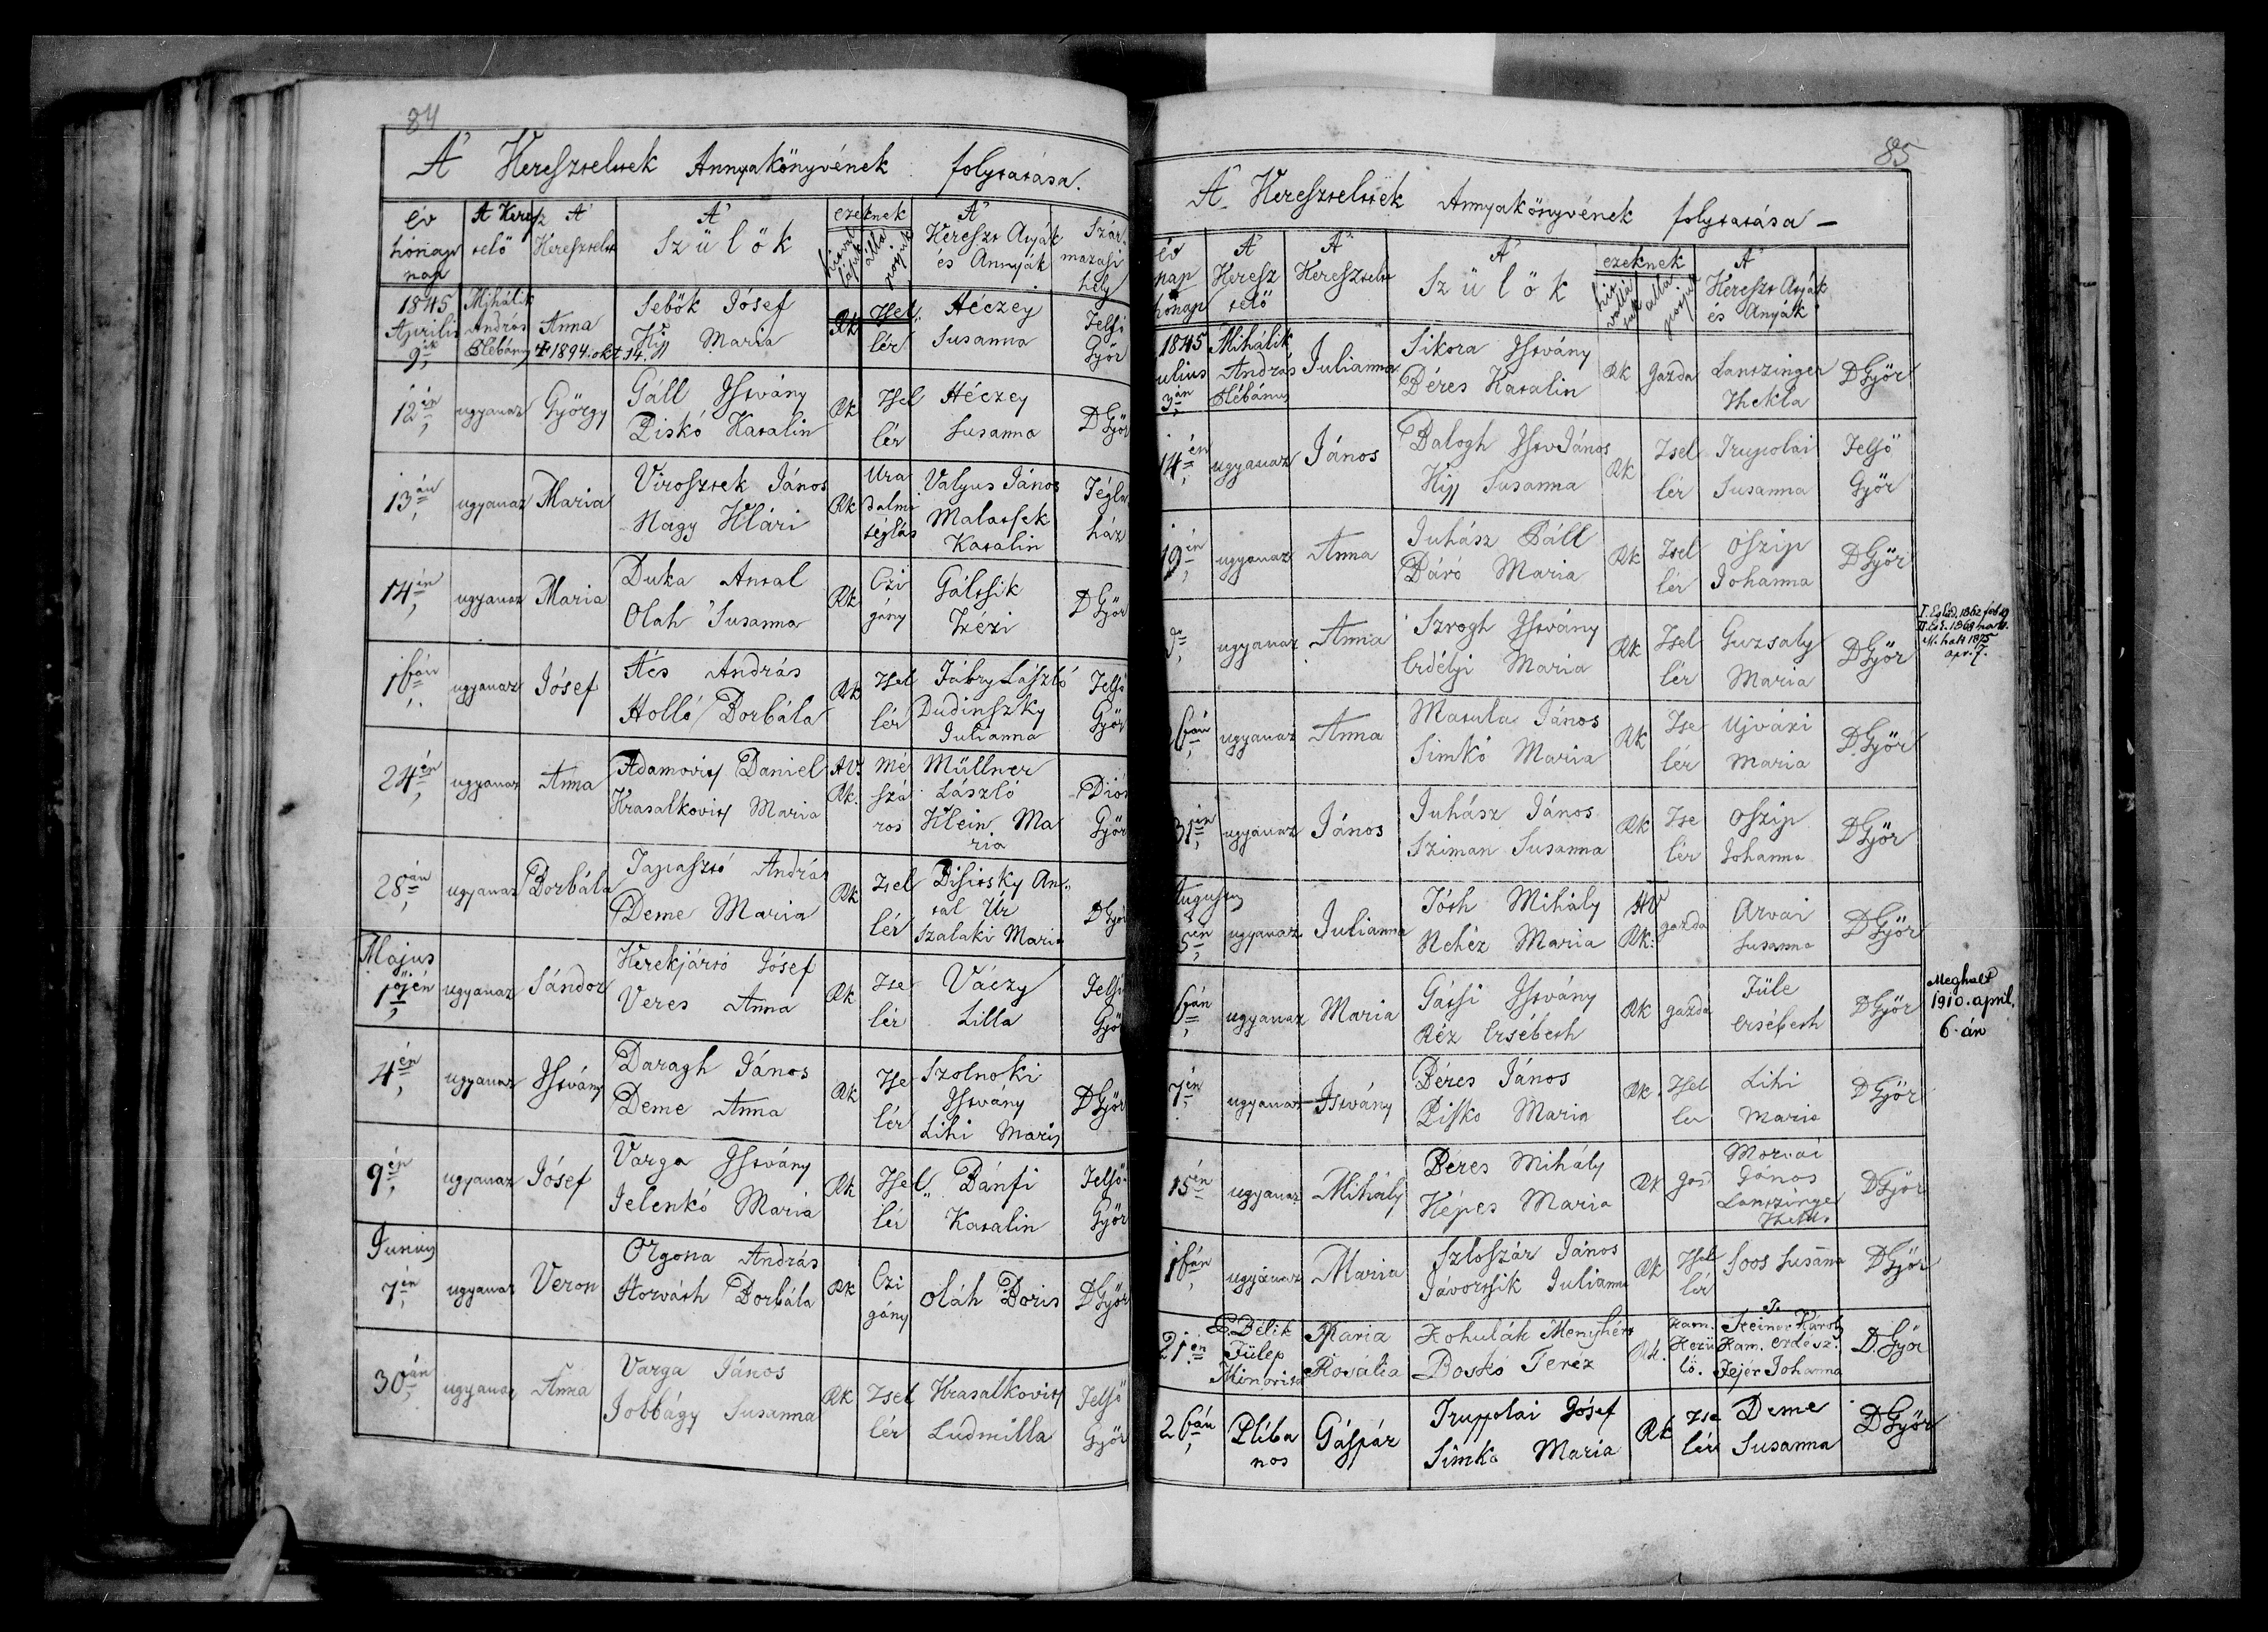 84
A' Kereszteltek Annyakönyvének folytatása.
év hónap nap
A Keresztelő
A' Keresztelt
A' Szülők
ezeknek
A' Kereszt Atyák és Annyák
Származási hely
1845 Aprilis 9ik Mihálik András Plébános Anna 1894. okt. 14. Sebők Jósef Kiss Maria Rk Zsellér Héczey Susanna Felső Győr
12én ugyanaz György Gáll Istvány Piskó Katalin Rk Zsellér Héczey Susanna D Győr
13án ugyanaz Maria Virosztek János Nagy Klári Rk Uradalmi téglás Valyus János Malatsek Katalin Tégla ház
14én ugyanaz Maria Duka Antal Olah Susanna Rk Czigány Gáltsik Trézi D Győr
16án ugyanaz Jósef Ács András Holló Borbála Rk Zsellér Fábry László Dudinszky Julianna Felső Győr
24én ugyanaz Anna Adamovits Daniel Krasalkovits Maria AV. Rk. Mészáros Müllner László Klein Maria Diós Győr
28án ugyanaz Borbála Tapasztó András Deme Maria Rk Zsellér Antal Úr Szalaki Maria D Győr
Majus 1ső jén ugyanaz Sándor Kerekjártó Jósef Veres Anna Rk Zsellér Váczy Lilla Felső Győr
4én ugyanaz Istvány Daragh János Deme Anna Rk Zsellér Szolnoki Istvány Lihi Maris D Győr
9én ugyanaz Jósef Varga Istvány Jelenkó Maria Rk Zsellér Bánfi Katalin Felső Győr
Junius 7én ugyanaz Veron Orgona András Horváth Borbála Rk Czigány Oláh Boris D Győr
30án ugyanaz Anna Varga János Jobbágy Susanna Rk Zsellér Krasalkovits Ludmilla Felső Győr
85
A' Kereszteltek Annyakönyvének folytatása –
év nap hónap
A' Keresztelő
A' Keresztelt
A' Szülők
ezeknek
A' Kereszt Atyák és Anyák
1845 Julius 3án Mihálik András Plébános Julianna Sikora Istvány Béres Katalin Rk gazda Lantzinger Thekla D Győr
14én ugyanaz János Balogh János Kiss Susanna Rk Zsellér Trupolai Susanna Felső Győr
19én ugyanaz Anna Juhász Páll Báró Maria Rk Zsellér Oszip Johanna D Győr
ugyanaz Anna Szrogh Istvány Erdélyi Maria Rk Zsellér Guzsaly Maria D Győr
26án ugyanaz Anna Matula János Simkó Maria Rk Zselér Ujvári Maria D Győr
31én ugyanaz János Juhász János Sziman Susanna Rk Zselér Oszip Johanna D Győr
Augustus 5én ugyanaz Julianna Tóth Mihály Nehéz Maria HV Rk. gazda Arvai Susanna D Győr
6án ugyanaz Maria Gátsi Istvány Réz Ersébeth Rk gazda Füle Ersébeth D Győr
Meghalt 1910. april. 6-án
7én ugyanaz Istvány Béres János Pisko Maria Rk. Zseller Lihi Maria D Győr
15én ugyanaz Mihály Béres Mihály Képes Maria Rk gaz Morvai János Lantzinger D Győr
16án ugyanaz Maria Szloszár János Jávortsik Julianna Rk Zsellér Soos Susanna D Győr
21én P. Bélik Fülep Minorita Maria Rosália Kohulák Menyhért Boskó Teréz Rk. Kam. Kerülő. Steiner Károly Kam. erdész. Fejér Johanna D. Győr
26án Plébános Gáspár Truppolai Jósef Simka Maria Rk Zselér Deme Susanna D Győr